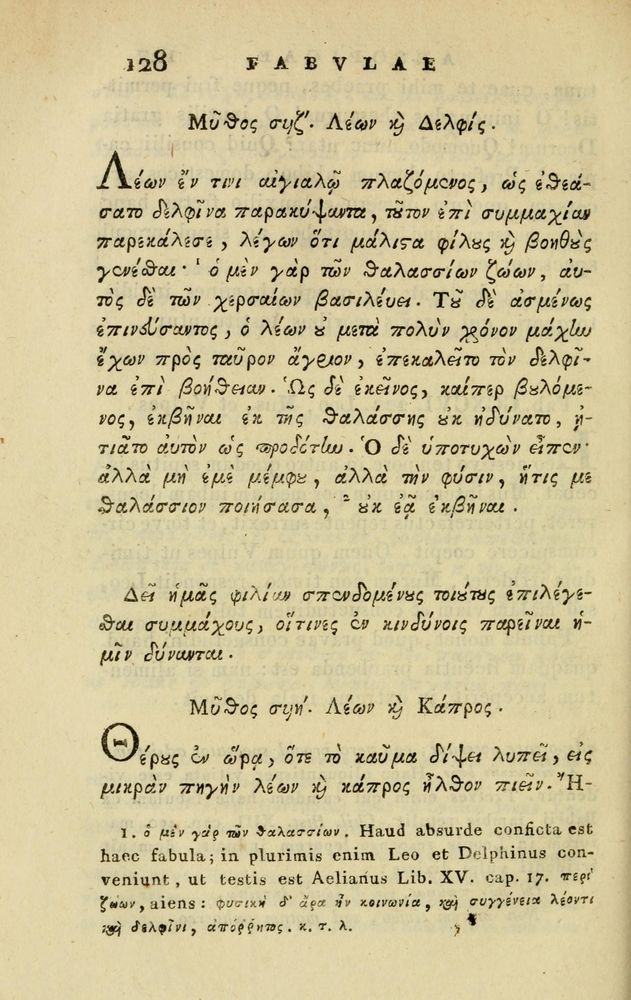 128 FABVLAE
Μῦθος σιζʹ. Λέων ϗ Δελφίς.
Λέων ἔν τινι αἰγιαλῷ πλαζόμενος, ὡς ἐθεά-
σατο δελφῖνα παρακύψαντα, τοῦτον ἐπὶ συμμαχίαν
παρεκάλεσε, λέγων ὅτι μάλιστα φίλους ϗ βοηθοὺς
γενέσθαι· ¹ ὁ μὲν γὰρ τῶν θαλασσίων ζώων, αὐ-
τὸς δὲ τῶν χερσαίων βασιλεύει. Τοῦ δὲ ἀσμένως
ἐπινεύσαντος, ὁ λέων οὐ μετὰ πολὺν χρόνον μάχην
ἔχων πρὸς ταῦρον ἄγριον, ἐπεκαλεῖτο τὸν δελφῖ-
να ἐπὶ βοήθειαν. Ὡς δὲ ἐκεῖνος, καίπερ βουλόμε-
νος, ἐκβῆναι ἐκ τῆς θαλάσσης οὐκ ἠδύνατο, ᾐ-
τιᾶτο αὐτὸν ὡς προδότην. Ὁ δὲ ὑποτυχὼν εἶπεν·
ἀλλὰ μὴ ἐμὲ μέμφου, ἀλλὰ τὴν φύσιν, ἥτις με
θαλάσσιον ποιήσασα, ² οὐκ ἐᾷ ἐκβῆναι.
Δεῖ ἡμᾶς φιλίαν σπενδομένους τοιούτους ἐπιλέγε-
σθαι συμμάχους, οἵτινες ἐν κινδύνοις παρεῖναι ἡ-
μῖν δύνανται.
Μῦθος σιηʹ. Λέων ϗ Κάπρος.
Θέρους ἐν ὥρᾳ, ὅτε τὸ καῦμα δίψει λυπεῖ, εἰς
μικρὰν πηγὴν λέων ϗ κάπρος ἦλθον πιεῖν. Ἤ-
1. ὁ μὲν γὰρ τῶν θαλασσίων. Haud absurde conficta est
haec fabula; in plurimis enim Leo et Delphinus con-
veniunt, ut testis est Aelianus Lib. XV. cap. 17. περὶ
ζώων, aiens: φυσικὴ δ' ἄρα ἦν κοινωνία, καὶ συγγένεια λέοντι
καὶ δελφῖνι, ἀπόρρητος. κ. τ. λ.